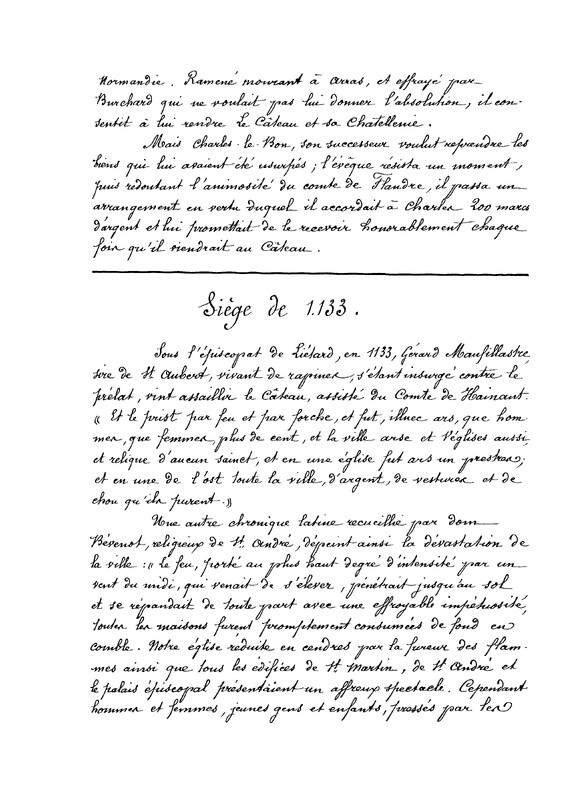 Normandie. Ramené mourant à Arras, et effrayé par
Burchard qui ne voulait pas lui donner l'absolution, il con-
sentit à lui rendre le Câteau et sa Chatellenie.
Mais Charles-le-Bon, son successeur voulut reprendre les
biens qui lui avaient été usurpés ; l'évêque résista un moment,
puis redoutant l'animosité du comte de Flandre, il passa un
arrangement en vertu duquel il accordait à Charles 200 marcs
d'argent et lui promettait de le recevoir honorablement chaque
fois qu'il viendrait au Câteau.
Siège de 1.133.
Sous l'épiscopat de Liétard, en 1133, Gérard Maufillastre,
sire de St Aubert, vivant de rapines, s'étant insurgé contre le
prélat, vint assaillir le Câteau, assisté du Comte de Hainant.
« Et le prist par feu et par forche, et fut, illuec ars, que hom
mes, que femmes, plus de cent, et la ville arse et l'églises aussi
et relique d'aucun sainct, et en une église fut ars un prestres ;
et en une de l'ost toute la ville, d'argent, de vestures et de
chou qu'ils purent. »
Une autre chronique latine recueillie par dom
Bévenot, religieux de St André, dépeint ainsi la dévastation de
la ville : « le feu, porté au plus haut degré d'intensité par un
vent du midi, qui venait de s'élever, pénétrait jusqu'au sol
et se répandait de toute part avec une effroyable impétuosité,
toutes les maisons furent promptement consumées de fond en
comble. Notre église réduite en cendres par la fureur des flam-
mes ainsi que tous les édifices de St Martin, de St André et
le palais épiscopal présentaient un affreux spectacle. Cependant
hommes et femmes, jeunes gens et enfants, pressés par les